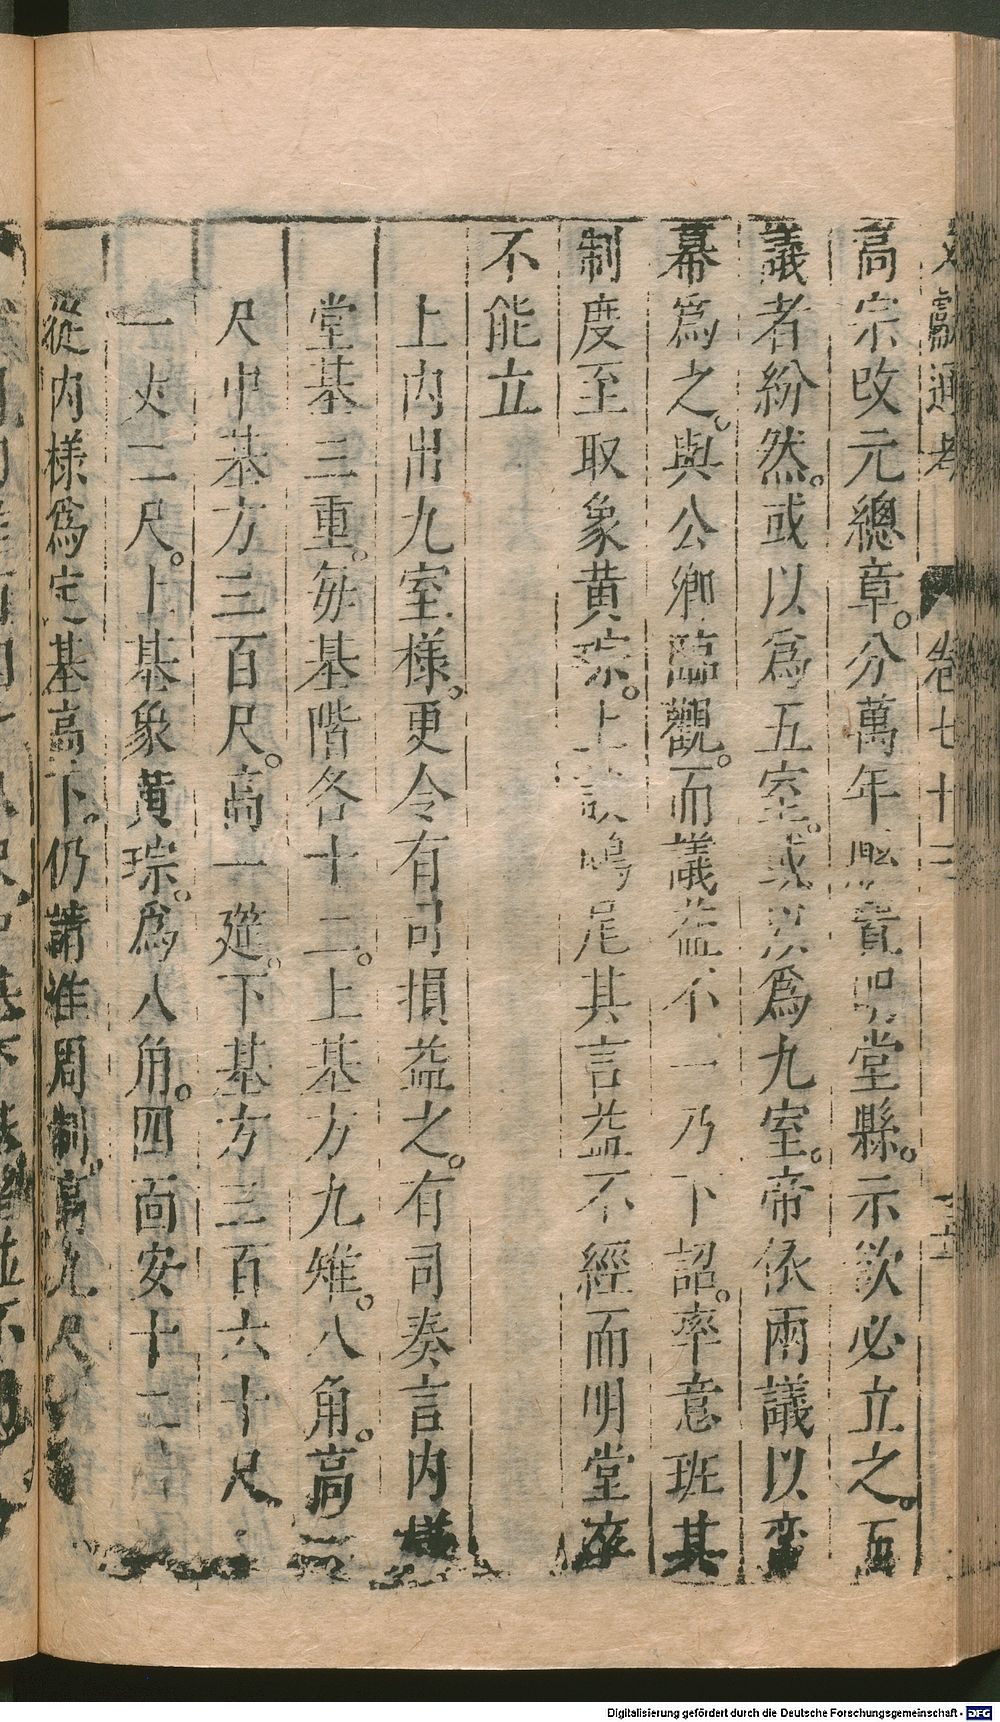 文獻通考 卷七十三
高宗改元總章。分萬年置明堂縣。示欲必立之。而
議者紛然。或以爲五室。或以爲九室。帝依兩議以
幕爲之。與公卿臨觀。而議益不一乃下詔。率意班其
制度至取象黄琮。上設鴟尾其言益不經而明堂卒
不能立
上内出九室樣。更令有司損益之。有司奏言内樣
堂基三重。每基階各十二。上基方九雉。八角。高一
尺中基方三百尺。高一筵。下基方三百六十尺
一丈二尺。上基象黄琮。爲八角。四面安十二
從内樣爲定基高下。仍請准周制。高九尺
Digitalisierung gefördert durch die Deutsche Forschungsgemeinschaft - DFG